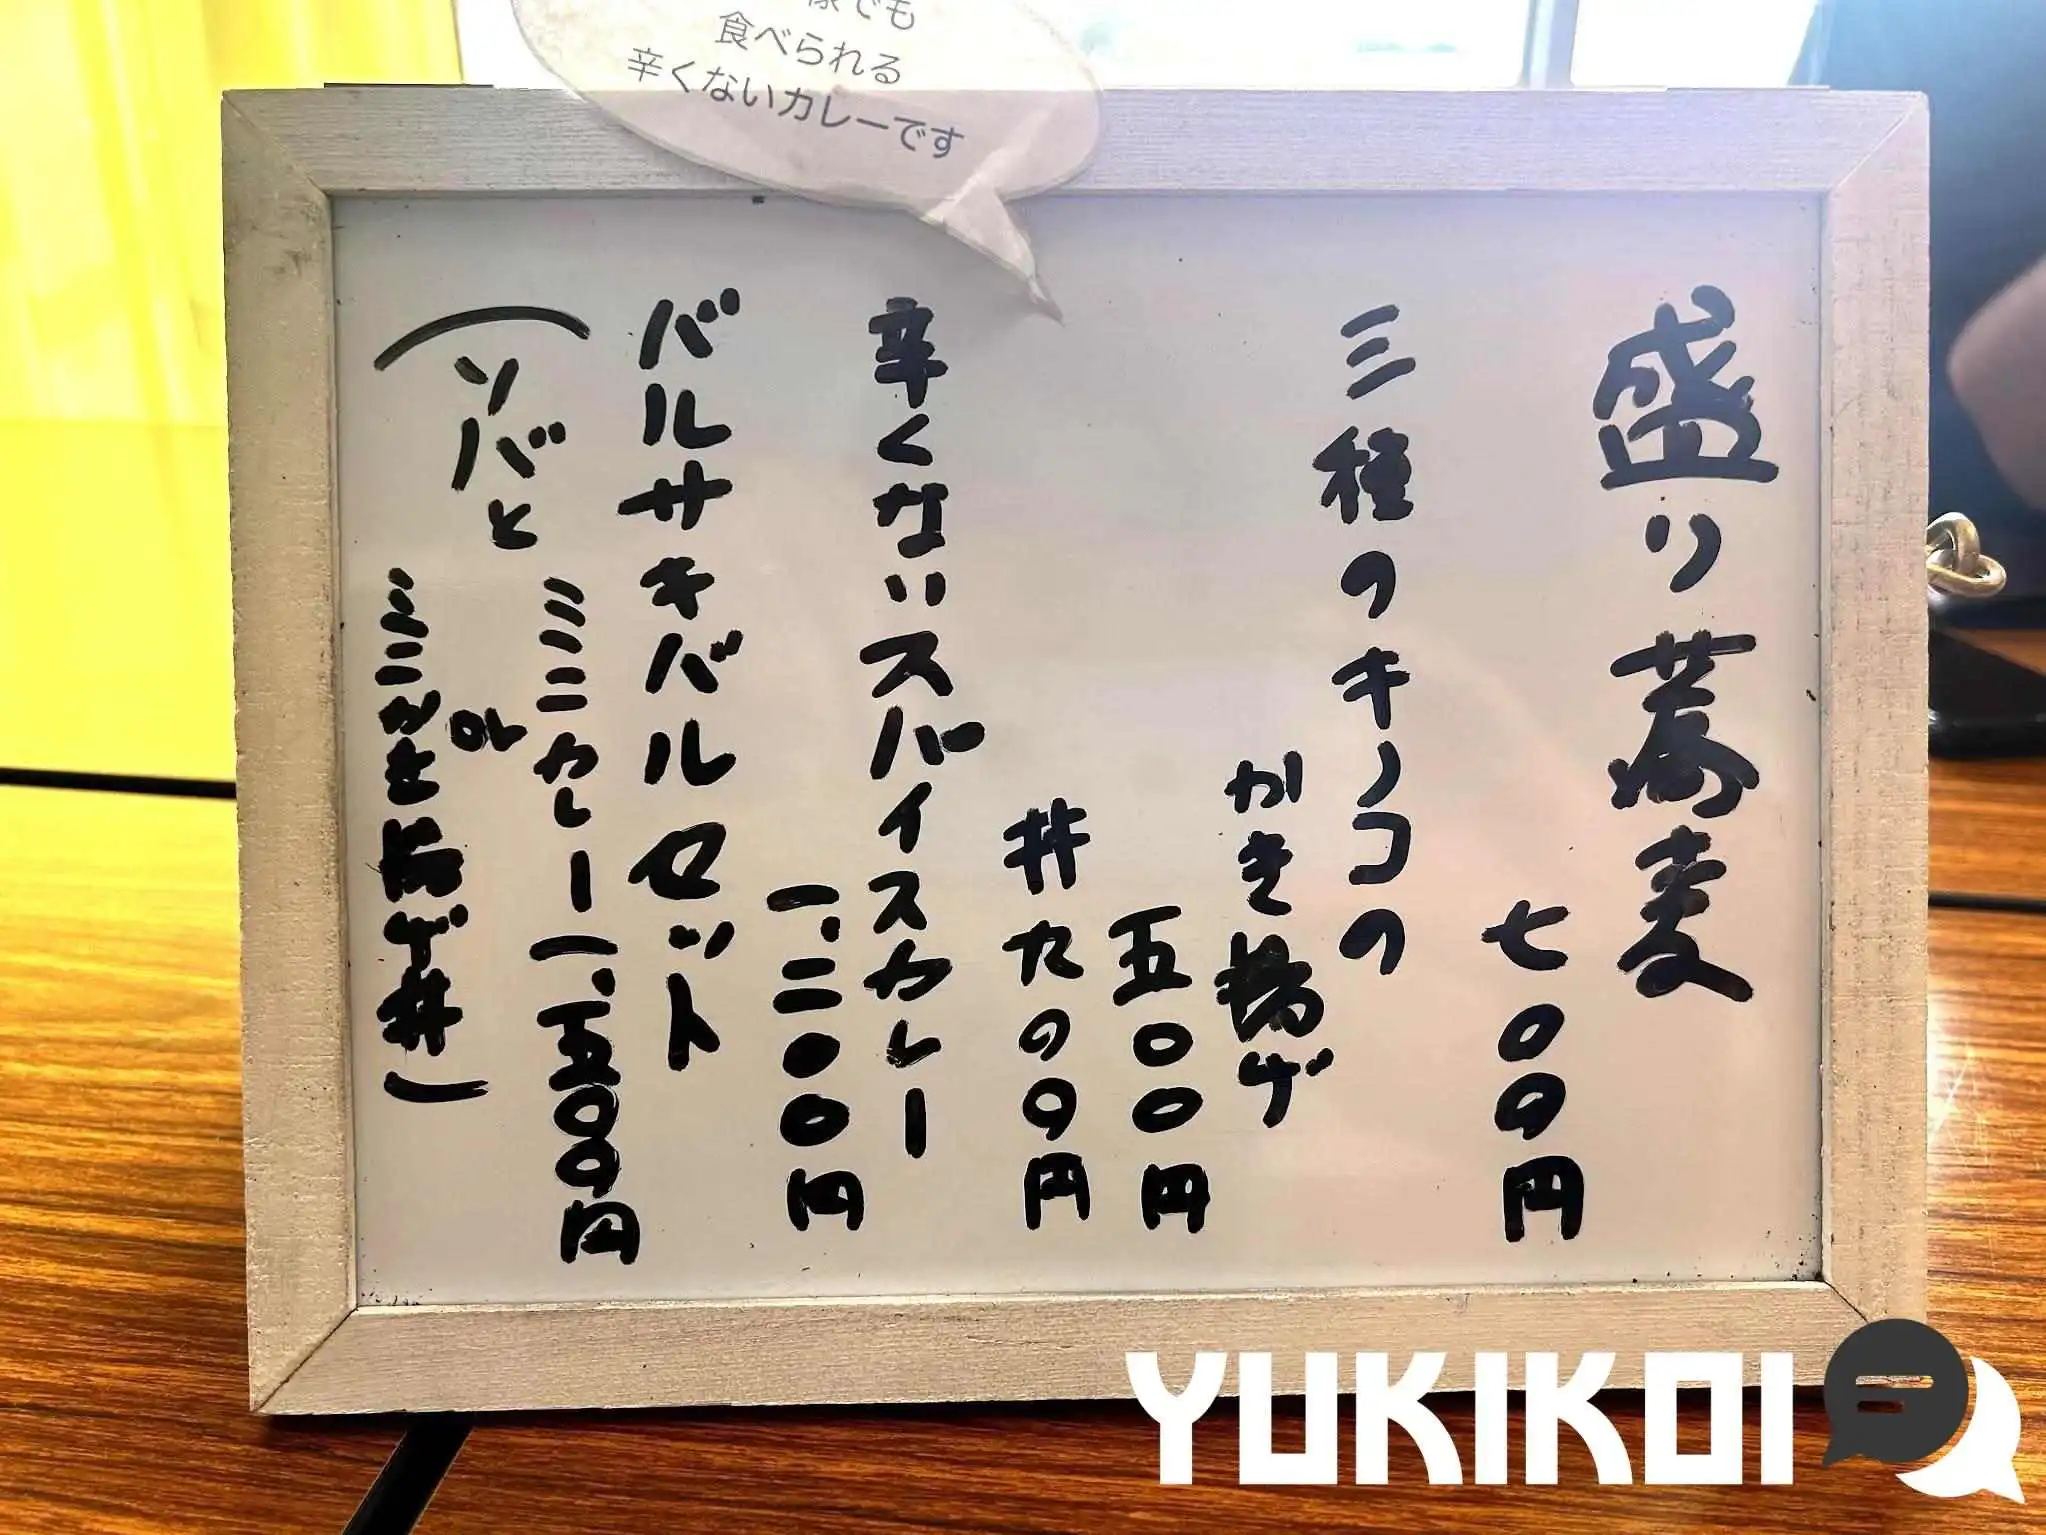 食べられる
辛くないカレーです
盛り蕎麦
七〇〇円
三種のキノコの
かき揚げ
五〇〇円
丼九〇〇円
辛くないスパイスカレー
一、二〇〇円
バルサキバルセット
(ソバと
ミニカレー 一、五〇〇円
or
ミニかき揚げ丼)
YUKIKOI